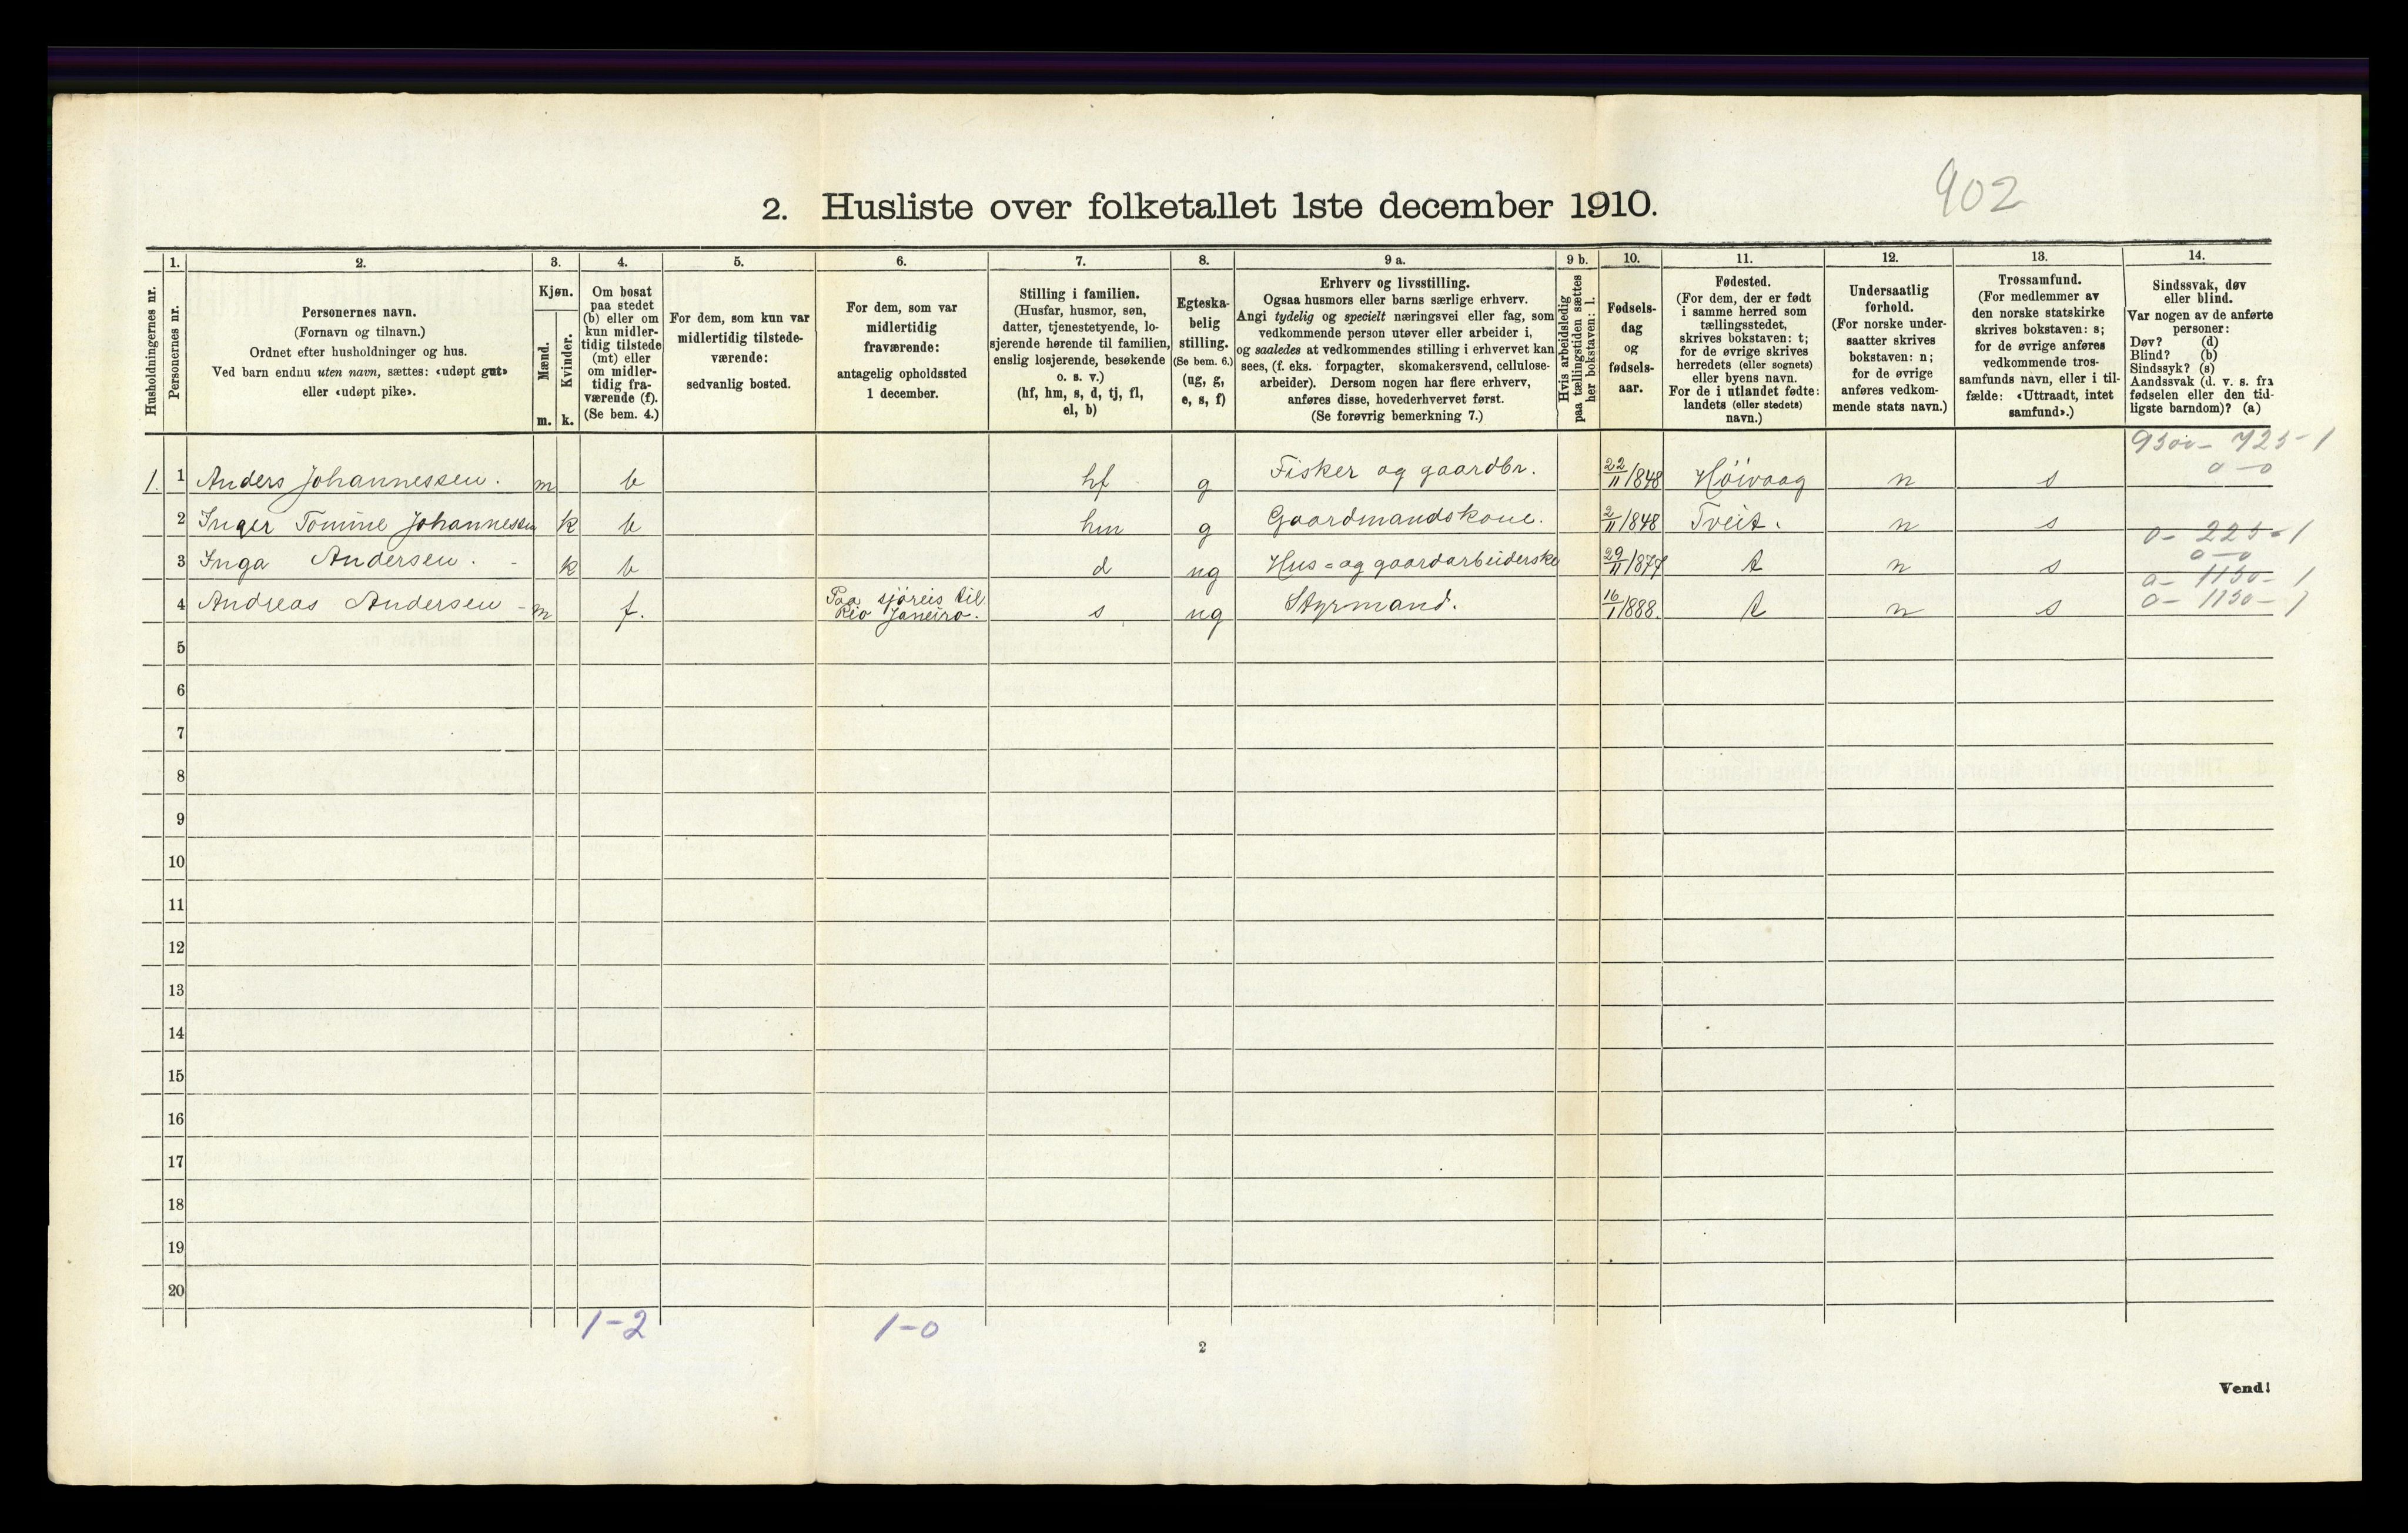 902
2. Husliste over folketallet 1ste december 1910.
Husholdningernes nr.
1.
Personernes nr.
2.
Personernes navn.
(Fornavn og tilnavn.)
Ordnet efter husholdninger og hus.
Ved barn endnu uten navn, sættes: «udøpt gut»
eller «udøpt pike».
3.
Kjøn.
Mænd.
m.
Kvinder.
k.
4.
Om bosat
paa stedet
(b) eller om
kun midler-
tidig tilstede
(mt) eller
om midler-
tidig fra-
værende (f).
(Se bem. 4.)
5.
For dem, som kun var
midlertidig tilstede-
værende:
sedvanlig bosted.
6.
For dem, som var
midlertidig
fraværende:
antagelig opholdssted
1 december.
7.
Stilling i familien.
(Husfar, husmor, søn,
datter, tjenestetyende, lo-
sjerende hørende til familien,
enslig losjerende, besøkende
o. s. v.)
(hf, hm, s, d, tj, fl,
el, b)
8.
Egteska-
belig
stilling.
(Se bem. 6.)
(ug, g,
e, s, f)
9 a.
Erhverv og livsstilling.
Ogsaa husmors eller barns særlige erhverv.
Angi tydelig og specielt næringsvei eller fag, som
vedkommende person utøver eller arbeider i,
og saaledes at vedkommendes stilling i erhvervet kan
sees, (f. eks. forpagter, skomakersvend, cellulose-
arbeider). Dersom nogen har flere erhverv,
anføres disse, hovederhvervet først.
(Se forøvrig bemerkning 7.)
9 b.
Hvis arbeidsledig
paa tællingstiden sættes
her bokstaven: l.
10.
Fødsels-
dag
og
fødsels-
aar.
11.
Fødested.
(For dem, der er født
i samme herred som
tællingsstedet,
skrives bokstaven: t;
for de øvrige skrives
herredets (eller sognets)
eller byens navn.
For de i utlandet fødte:
landets (eller stedets)
navn.)
12.
Undersaatlig
forhold.
(For norske under-
saatter skrives
bokstaven: n;
for de øvrige
anføres vedkom-
mende stats navn.)
13.
Trossamfund.
(For medlemmer av
den norske statskirke
skrives bokstaven: s;
for de øvrige anføres
vedkommende tros-
samfunds navn, eller i til-
fælde: «Uttraadt, intet
samfund».)
14.
Sindssvak, døv
eller blind.
Var nogen av de anførte
personer:
Døv? (d)
Blind? (b)
Sindssyk? (s)
Aandssvak (d. v. s. fra
fødselen eller den tid-
ligste barndom)? (a)
1. 1 Anders Johannessen. m b hf g Fisker og gaardbr. 22/11 1848 Höivaag n s 0-0
2 Inger Tomine Johannessen k b hm g Gaardmandskone. 2/11 1848 Tveit. n s
0- 225-1
3 Inga Andersen. k b d ug Hus- og gaardarbeiderske 29/11 1877 t n s 0-0
0- 1150-1
4 Andreas Andersen m f. Paa sjöreis til
Rio Janeiro. s ug Styrmand. 16/1 1888. t n s 0- 1150-1
5
6
7
8
9
10
11
12
13
14
15
16
17
18
19
20
1-2 1-0
2
Vend!